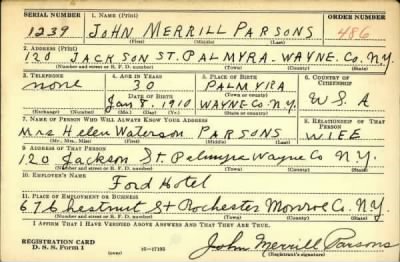 SERIAL NUMBER 1. NAME (Print) ORDER NUMBER
1239 JOHN MERRILL PARSONS 486
(First) (Middle) (Last)
2. ADDRESS (Print)
120 JACKSON ST. PALMYRA - WAYNE. CO. N.Y.
(Number and street or R. F. D. number) (Town) (County) (State)
3. TELEPHONE 4. AGE IN YEARS 5. PLACE OF BIRTH 6. COUNTRY OF CITIZENSHIP
none 30 PALMYRA
DATE OF BIRTH (Town or county)
Jan 8. 1910 WAYNE CO. N.Y. U S A
(Exchange) (Number) (Mo.) (Day) (Yr.) (State or country)
7. NAME OF PERSON WHO WILL ALWAYS KNOW YOUR ADDRESS 8. RELATIONSHIP OF THAT PERSON
Mrs Helen Waterson PARSONS WIFE
(Mr., Mrs., Miss) (First) (Middle) (Last)
9. ADDRESS OF THAT PERSON
120 Jackson St. Palmyra Wayne Co N.Y.
(Number and street or R. F. D. number) (Town) (County) (State)
10. EMPLOYER'S NAME
Ford Hotel
11. PLACE OF EMPLOYMENT OR BUSINESS
676 Chestnut St Rochester Monroe Co. N.Y
(Number and street or R. F. D. number) (Town) (County) (State)
I AFFIRM THAT I HAVE VERIFIED ABOVE ANSWERS AND THAT THEY ARE TRUE.
REGISTRATION CARD
D. S. S. Form 1 (over) 16-17105 John Merrill Parsons